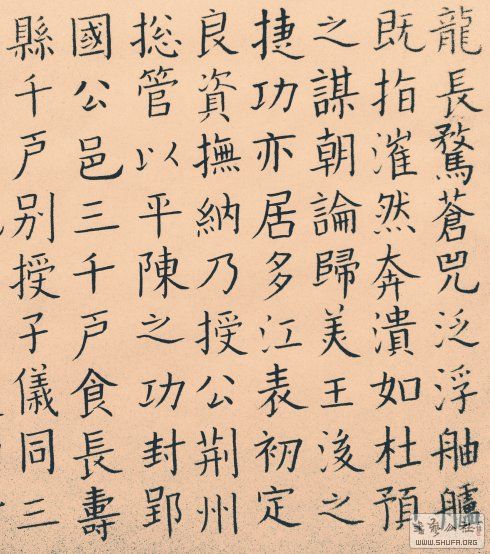 龍長騖蒼兕泛浮舳艫
既指漼然奔潰如杜預
之謀朝論歸美王浚之
捷功亦居多江表初定
良資撫納乃授公荆州
揔管以平陳之功封郢
國公邑三千戶食長壽
縣千戶別授子儀同三
WWW.SHUFA.ORG